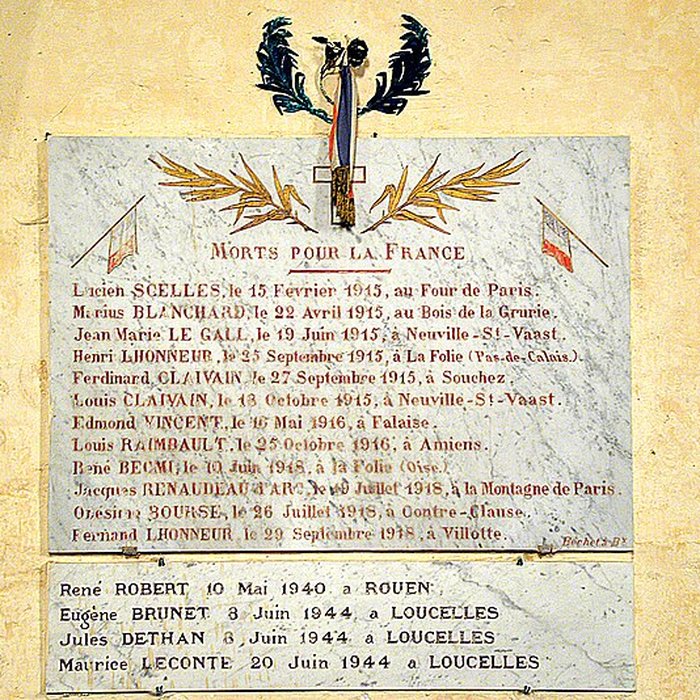 MORTS POUR LA FRANCE
Lucien SCELLES, le 15 Février 1915, au Four de Paris.
Marius BLANCHARD, le 22 Avril 1915, au Bois de la Grurie.
Jean Marie LE GALL, le 19 Juin 1915, à Neuville-St-Vaast.
Henri LHONNEUR, le 25 Septembre 1915, à La Folie (Pas-de-Calais).
Ferdinand CLAIVAIN, le 27 Septembre 1915, à Souchez.
Louis CLAIVAIN, le 18 Octobre 1915, à Neuville-St-Vaast.
Edmond VINCENT, le 16 Mai 1916, à Falaise.
Louis RAIMBAULT, le 25 Octobre 1916, à Amiens.
René le 10 Juin 1918, à la Folie (Oise)
Jacques RENAUDEAU D'ARC, le Juillet 1918, à la Montagne de Paris.
BOURSE, le 26 Juillet 1918, à Contre-Clause.
Fernand LHONNEUR, le 29 Septembre 1918, à Villotte.
René ROBERT 10 Mai 1940 a ROUEN
Eugène BRUNET 8 Juin 1944 a LOUCELLES
Jules DETHAN 8 Juin 1944 a LOUCELLES
Maurice LECONTE 20 Juin 1944 a LOUCELLES